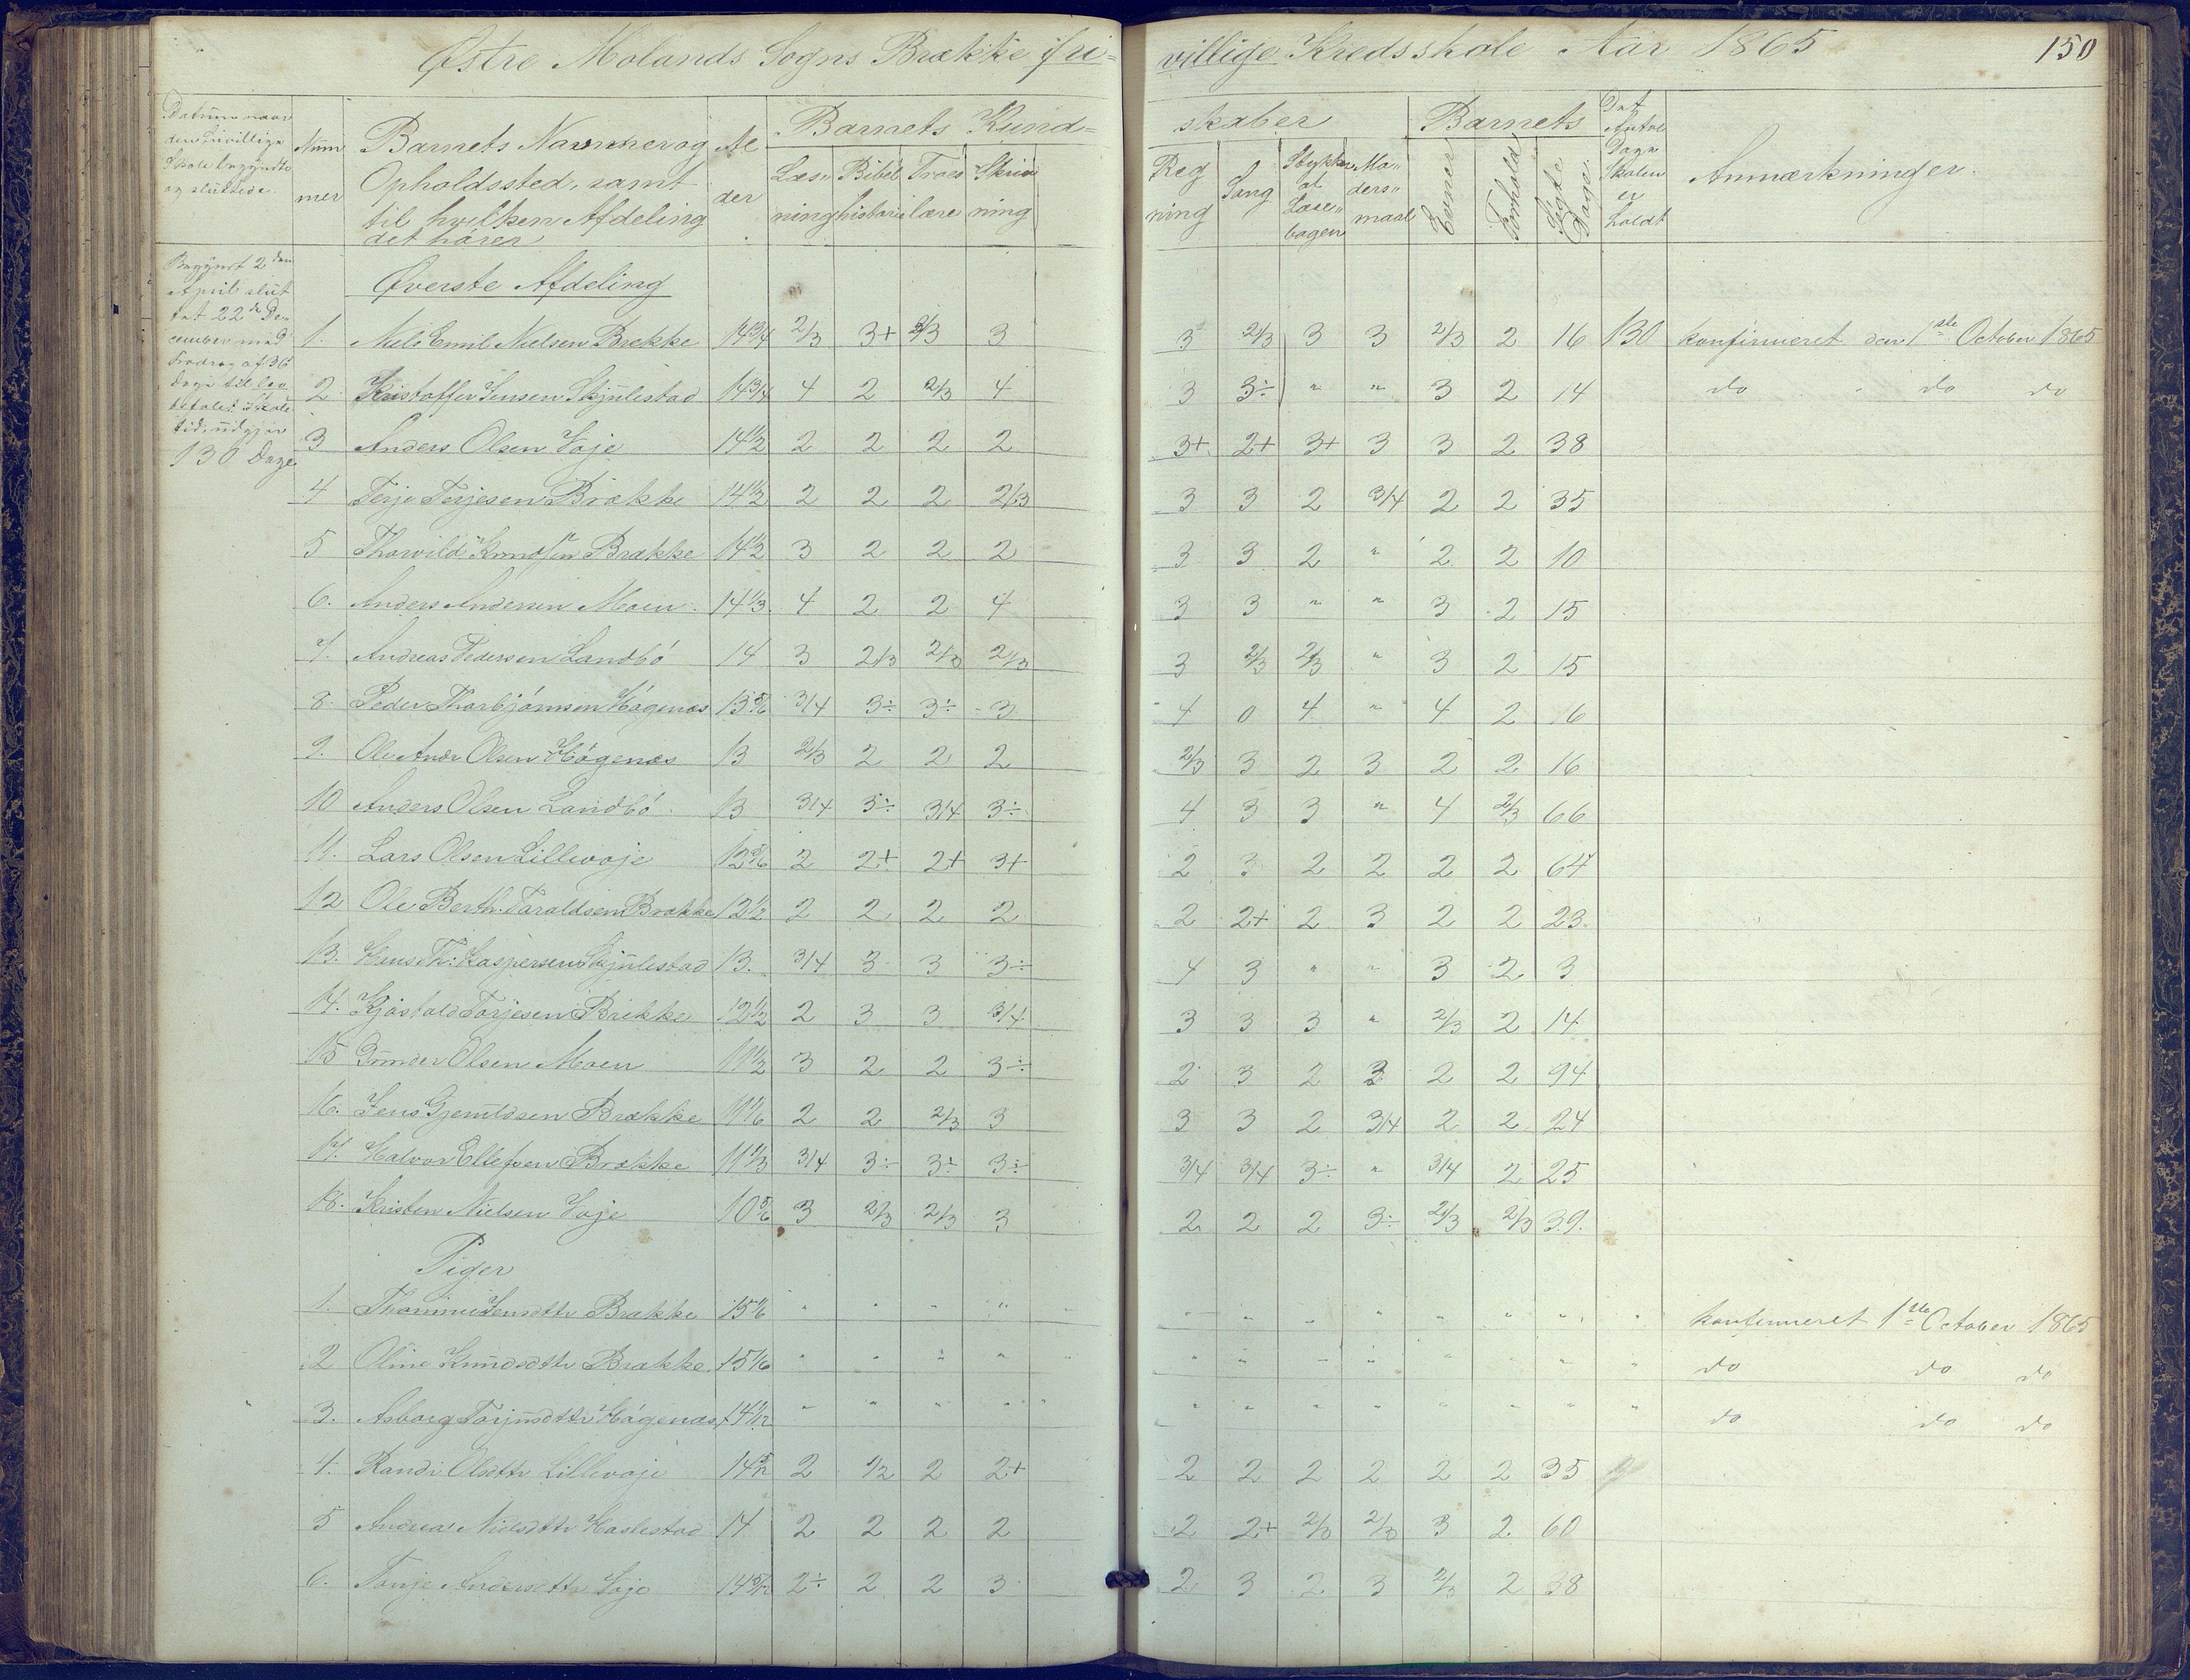 Østre Molands Sogns Brække fri=
villige Kredsskole Aar 1865
150
Datum naar
den frivillige
Skole begyndte
og sluttede.
Num
mer
Barnets Navne og
Opholdssted, samt
til hvilken Afdeling
det hører
Al
der
Barnets Kund=
skaber
Læs"
ning
Bibel
historie
Troes
lære
Skriv
ning
Reg
ning
Sang
Stykker
af
Læse"
bogen
Mo"
ders"
maal
Barnets
Evner
Forhold
Søgte
Dage.
Det
Antal
Dage
Skolen
er
holdt
Anmærkninger.
Begyndt 2den
April slut
tet 22de De-
cember med
Fradrag af 36
Dage til
Skole
tid, udgjør
130 Dage
Øverste Afdeling
1. Niels Emil Nielsen Brække 14 3/4 2/3 3+ 2/3 3 3 2/3 3 3 2/3 2 16 130 konfirmeret den 1ste October 1865
2. Kristoffer Jensen Skjulestad 14 3/4 4 2 2/3 4 3 3÷ " " 3 2 14 do do do
3 Anders Olsen Voje 14 1/2 2 2 2 2 3+ 2+ 3+ 3 3 2 38
4 Terje Terjesen Brække 14 1/2 2 2 2 2/3 3 3 2 3/4 2 2 35
5 Thorvild Knudsen Brække 14 1/2 3 2 2 2 3 3 2 " 2 2 10
6. Anders Andersen Moen 14 1/3 4 2 2 4 3 3 " " 3 2 15
7. Andreas Pedersen Landbö 14 3 2/3 2/3 2/3 3 2/3 2/3 " 3 2 15
8. Peder Thorbjörnsen Högenæs 13 5/6 3/4 3÷ 3÷ 3 4 0 4 " 4 2 16
9. Ole Andr Olsen Högenæs 13 2/3 2 2 2 2/3 3 2 3 2 2 16
10 Anders Olsen Landbö 13 3/4 3÷ 3/4 3÷ 4 3 3 " 4 2/3 66
11. Lars Olsen Lillevoje 12 5/6 2 2+ 2+ 3+ 2 3 2 2 2 2 64
12 Ole Berth. Taraldsen Brække 12 1/2 2 2 2 2 2 2+ 2 3 2 2 23
13. Th: Kaspersen Skjulestad 13. 3/4 3 3 3÷ 4 3 " " 3 2 3
14. Kjöstold Torjesen Brække 12 1/2 2 3 3 3/4 3 3 3 " 2/3 2 14
15 Gunder Olsen Moen 11 1/2 3 2 2 3÷ 2 3 2 3 2 2 94
16. Jens Gjeruldsen Brække 11 1/6 2 2 2/3 3 3 3 2 3/4 2 2 24
17. Halvor Ellefsen Brække 11 1/3 3/4 3÷ 3÷ 3÷ 3/4 3/4 3÷ " 3/4 2 25
18. Kristen Nielsen Voje 10 5/6 3 2/3 2/3 3 2 2 2 3÷ 2/3 2/3 39.
Piger
1. Thomine Jensdttr Brække 15 1/6 " " " " " " " " " " " " konfirmeret 1ste October 1865
2 Oline Knudsdttr Brække 15 1/6 " " " " " " " " " " " " do do do
3. Asborg Torjusdttr Högenæs 14 1/12 " " " " " " " " " " " " do do do
4. Randi Olsdttr Lillevoje 2 1/2 2 2+ 2 2 2 2 2 2 35
5 Andrea Nielsdttr Haslestad 14 2 2 2 2 2 2+ 2/3 2/3 3 2 60
6. Tonje Andersdttr Voje 2÷ 2 2 3 2 3 2 3 2/3 2 38